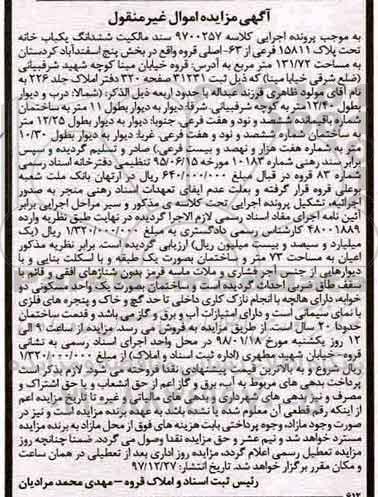 آگهی مزایده اموال غیر منقول
به موجب پرونده اجرایی کلاسه ۹۷۰۰۲۵۷ سند مالکیت ششدانگ یکباب خانه
تحت پلاک ۱۵۸۱۱ فرعی از ۶۳- اصلی قروه واقع در بخش پنج اسفندآباد کردستان
به مساحت ۱۳۱/۷۲ متر مربع به آدرس: قروه خیابان مینا کوچه شهید شرفبیانی
(ضلع شرقی خیابا مینا) که ذیل ثبت ۳۱۲۳۱ صفحه ۳۲۰ دفتر املاک جلد ۲۲۶ به
نام آقای مولود ظاهری فرزند عبداله با حدود اربعه ذیل الذکر: (شمالا: درب و دیوار
بطول ۱۲/۴۰ متر به کوچه شرفبیانی. شرقا: دیوار به دیوار بطول ۱۱ متر به ساختمان
شماره باقیمانده ششصد و نود و هفت فرعی. جنوبا: دیوار به دیوار بطول ۱۲/۲۵ متر
به ساختمان شماره ششصد و نود و هفت فرعی. غربا: دیوار به دیوار بطول ۱۰/۳۰
متر به شماره هفت هزار و نهصد و بیست فرعی.) صادر و تسلیم گردیده و سپس
برابر سند رهنی شماره ۱۰۱۸۳ مورخه ۹۵/۰۶/۱۵ تنظیمی دفترخانه اسناد رسمی
شماره ۸۳ قروه در قبال مبلغ ۶۴۰/۰۰۰/۰۰۰ ریال در ارتهان بانک ملت شعبه
بوعلی قروه قرار گرفته و بعلت عدم ایفای تعهدات اسناد رهنی منجر به صدور
اجرائیه، تشکیل پرونده اجرایی تحت کلاسه ی مذکور و سیر مراحل اجرایی برابر
آئین نامه اجرای مفاد اسناد رسمی لازم الاجرا گردیده در نهایت طبق نظریه وارده
۴۸۰۰۱۸۸۹ کارشناس رسمی دادگستری به مبلغ ۱/۳۲۰/۰۰۰/۰۰۰ ریال (یک
میلیارد و سیصد و بیست میلیون ریال) ارزیابی گردیده است. برابر نظریه مذکور
اعیان به مساحت ۷۳ متر و ساختمان بصورت یک طبقه و با اسکلت بنایی و با
دیوارهایی از جنس آجر فشاری و ملات ماسه قرمز بدون شنازهای افقی و قائم با
سقف طاق ضربی احداث گردیده است و ساختمان بصورت یک واحد مسکونی دو
خوابه، دارای هالچه با انجام نازک کاری داخلی تا حد گچ و خاک و پنجره های فلزی
با نمای سیمانی است و دارای امتیازات آب و برق و گاز می باشد و قدمت ساختمان
حدودا ۲۰ سال است. از طریق مزایده به فروش می رسد. مزایده از ساعت ۹ الی
۱۲ روز یکشنبه مورخ ۹۸/۰۱/۱۸ در محل واحد اجرای اسناد رسمی به نشانی
قروه- خیابان شهید مطهری (اداره ثبت اسناد و املاک) از مبلغ ۱/۳۲۰/۰۰۰/۰۰۰
ریال شروع و به بالاترین قیمت پیشنهادی نقدا فروخته می شود. لازم بذکر است
پرداخت بدهی های مربوط به آب، برق و گاز اعم از حق انشعاب و یا حق اشتراک و
مصرف و نیز بدهی های شهرداری و بدهی های مالیاتی و غیره تا تاریخ مزایده اعم
از اینکه رقم قطعی آن معلوم شده یا نشده باشد به عهده برنده مزایده است و نیز در
صورت وجود مازاد، وجوه پرداختی بابت هزینه های فوق از محل مازاد به برنده مزایده
مسترد خواهد شد و نیم عشر و حق مزایده نقدا وصول می گردد. ضمنا چنانچه روز
مزایده تعطیل رسمی اعلام گردد، مزایده روز اداری بعد از تعطیلی در همان ساعت
و مکان مقرر برگزار خواهد شد. تاریخ انتشار: ۹۷/۱۲/۲۷
رئیس ثبت اسناد و املاک قروه - مهدی محمد مرادیان
۶۱۲